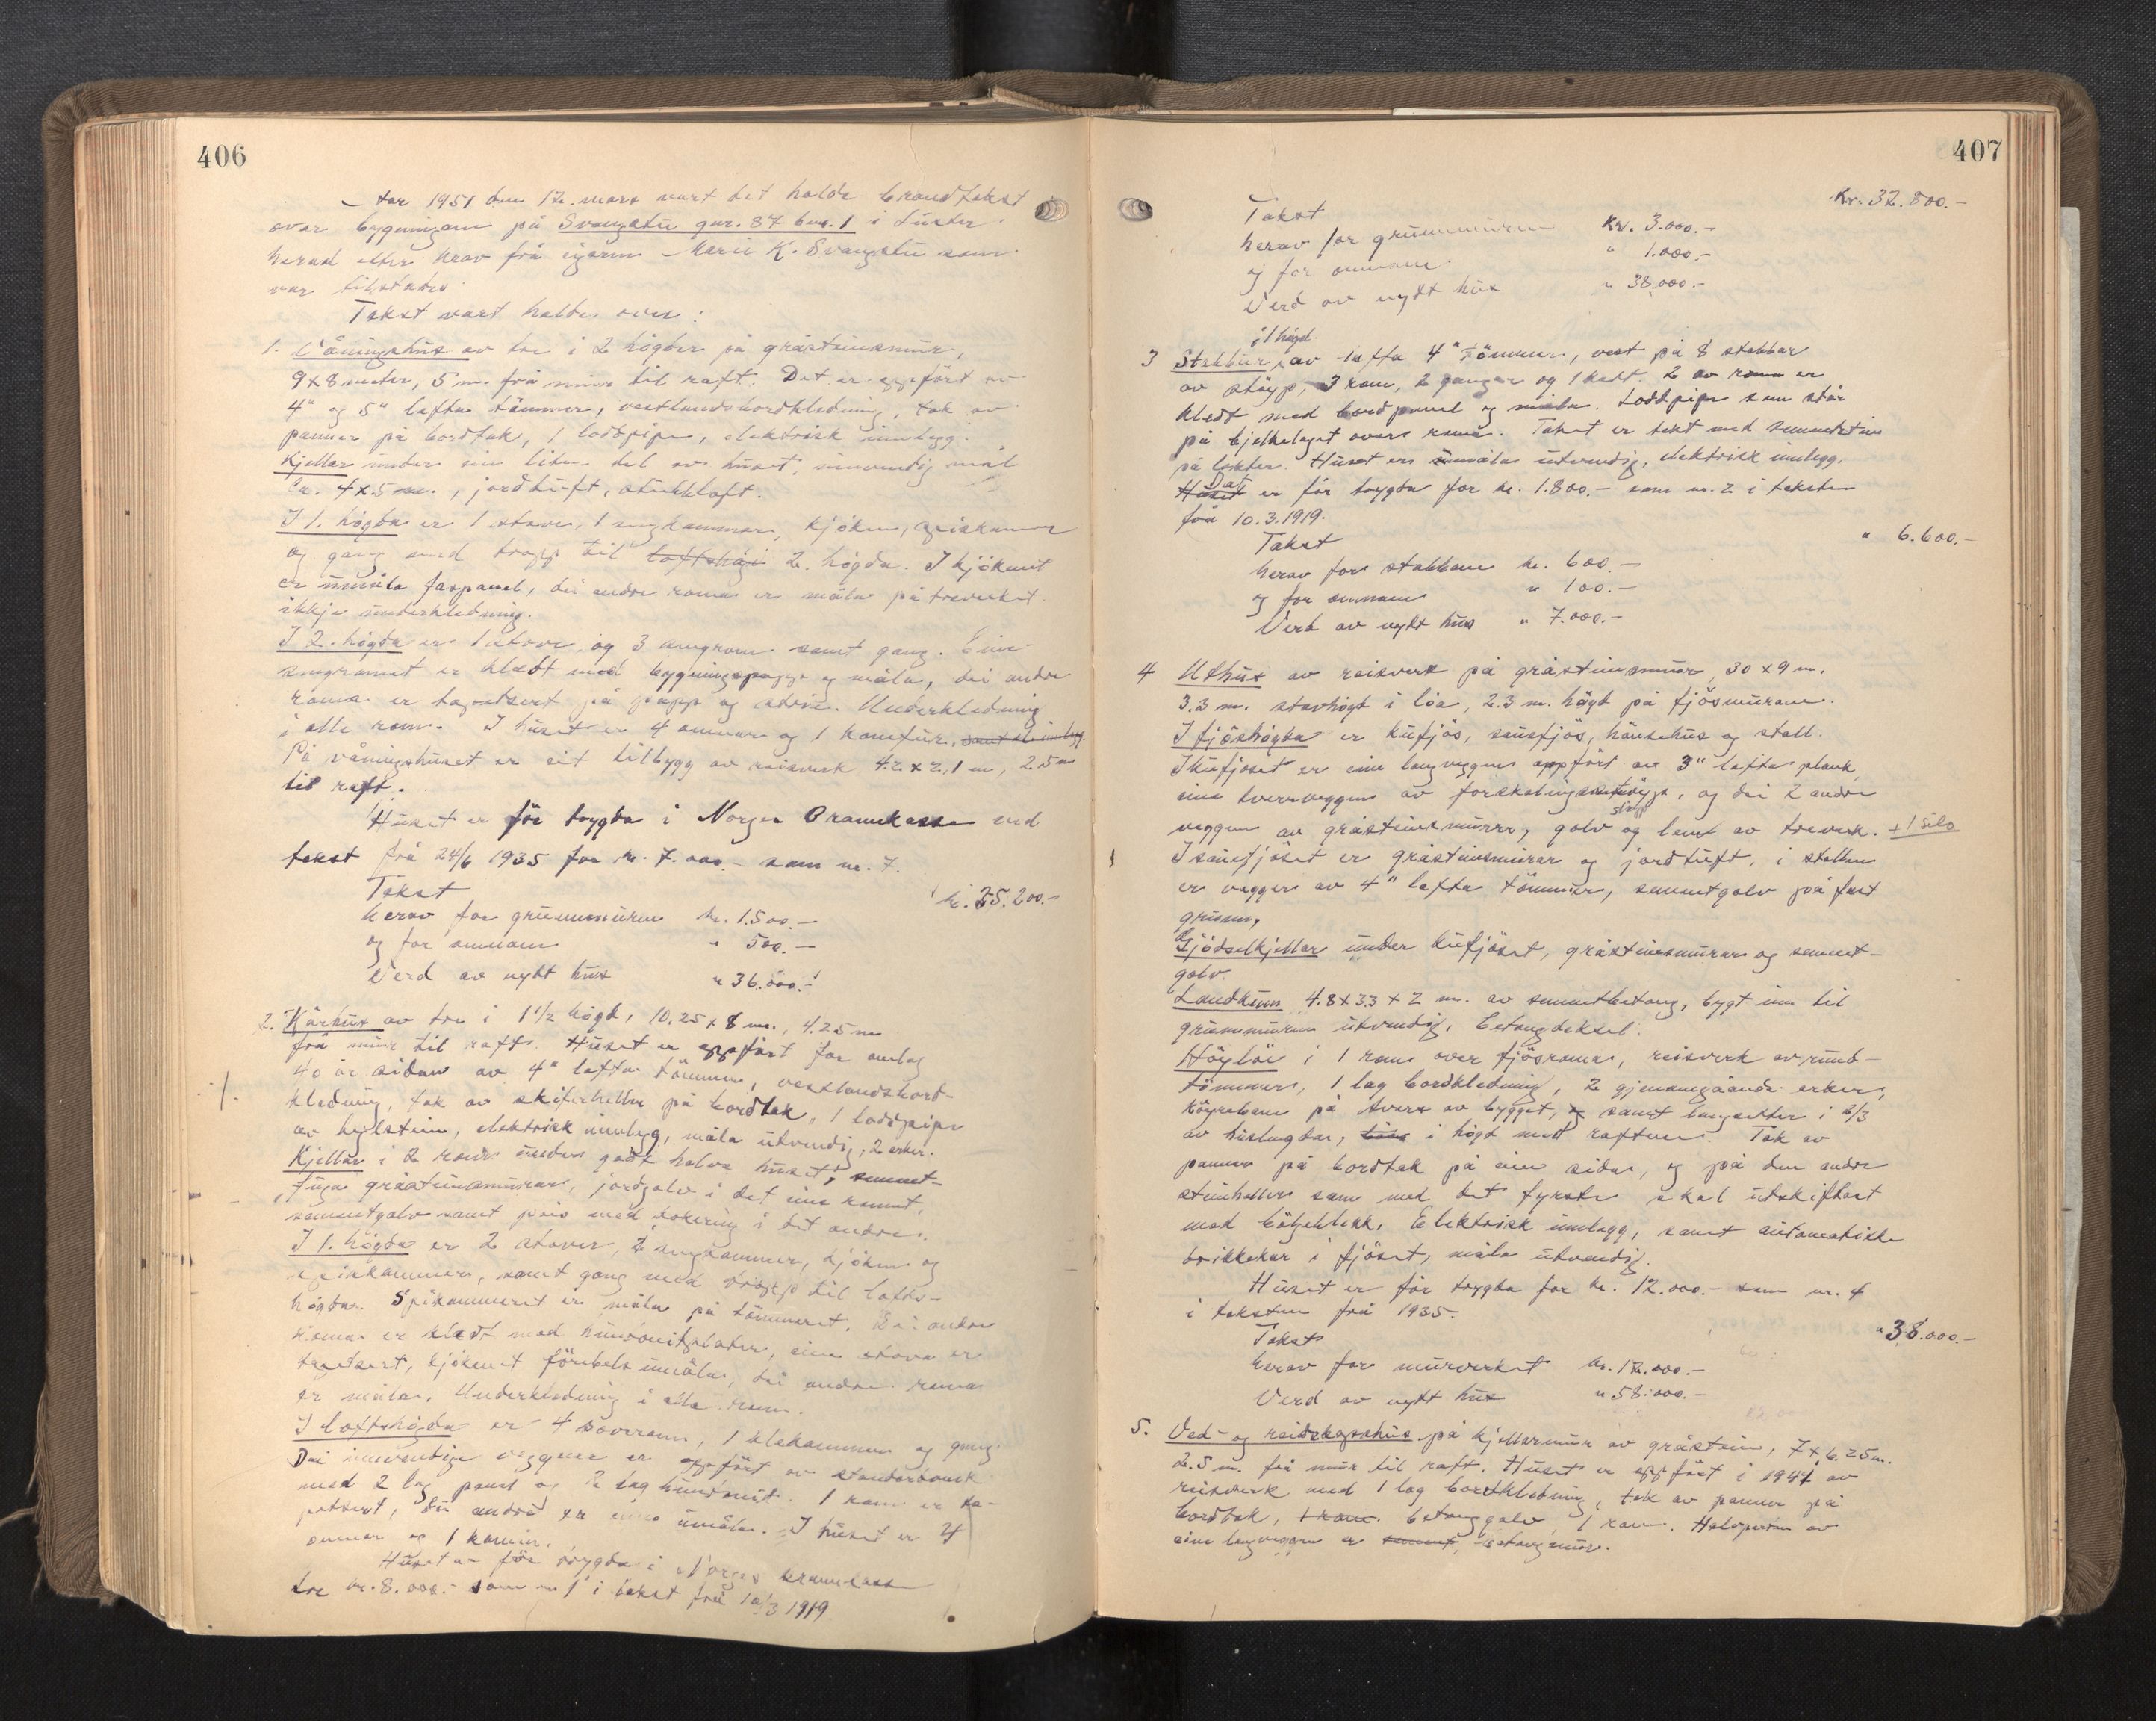 406
År 1951 den 12. mars vart det halde brandtakst
over bygningane på Svangstu gnr. 87 bnr. 1 i Luster
herad etter krav frå eigaren Marie K. Svangstu som
var tilstades.
Takst vart halden over:
1. Våningshus av tre i 2 högder på gråsteinsmur,
9 x 8 meter, 5 m. frå mur til raft. Det er oppfört av
4" og 5" lafta tömmer, vestlandsbordkledning, tak av
panner på bordtak, 1 loddpipe, elektrisk innlegg.
Kjellar under ein liten del av huset, innvendig mål
ca. 4 x 5 m., jordtuft, stukkloft.
I 1. högda er 1 stove, 1 sengkammer, kjöken, spiskammer
og gang med tropp til loftshögd 2. högda. I kjökenet
er umåla faspanel, dei andre roma er måla på treverket.
ikkje underkledning.
I 2. högda er 1 stove og 3 sengrom samt gang. Eine
sengromet er kledt med bygningspapp og måla, dei andre
roma er tapetsert på papp og strie. Underkledning
i alle rom. I huset er 4 omnar og 1 komfur, samt el. innlegg.
På våningshuset er eit tilbygg av reisverk 4.2 x 2,1 m, 2.5 m
til raft.
Huset er för trygda i Norges Brannkasse ved
takst frå 24/6 1935 for kr. 7.000.- som nr. 7.
Takst kr. 25.200.-
herav for grunnmuren kr. 1.500.-
og for omnane " 500.-
Verd av nytt hus " 36.000.-
2. Kårhus av tre i 1 1/2 högd, 10.25 x 8 m., 4.25 m
frå mur til raft. Huset er oppfört for omlag
40 år sidan av 4" lafta tömmer, vestlandsbord-
kledning, tak av skiferheller på bordtak, 1 loddpipe
av teglstein, elektrisk innlegg, måla utvendig, 2 arker.
Kjellar i 2 rom under godt halve huset, sement-
fuga gråsteinsmurar, jordgolv i det eine romet,
sementgolv samt peis med tokering i det andre.
I 1. högda er 2 stover, 2 sengkammer, kjöken og
spiskammer, samt gang med tropp til lofts-
högda. Spiskammeret er måla på tömmeret. Dei andre
roma er kledt med huntonitplater, eine stova er
tapetsert, kjökenet förebels umåla, dei andre roma
er måla. Underkledning i alle rom.
I loftshögda er 4 soverom, 1 klekammer og gang.
Dei innvendige veggene er oppfört av standarbork
med 2 lag panel og 2 lag huntonit. 1 rom er ta-
petsert, dei andre er enno umåla. I huset er 4
omnar og 1 kamin.
Huset er för trygda i Norges brannkasse
for kr. 8.000.- som nr. 1 i takst frå 10/3 1919
407
Takst Kr. 32.800.-
herav for grunnmuren Kr. 3.000.-
og for omnane " 1.000.-
Verd av nytt hus " 38.000.-
i 1 högd
3 Stabbur av lafta 4" tömmer, vest på 8 stabbar
av støyp, 3 rom, 2 ganger og 1 kott. 2 av roma er
kledt med bordpanel og måla. Loddpipe som står
på bjelkelaget over roma. Taket er tekt med sementstein
på lekter. Huset er umåla utvendig, elektrisk innlegg.
Huset Det er för trygda for kr. 1.800.- som nr. 2 i taksten
frå 10.3.1919.
Takst " 6.600.-
herav for stabbane kr. 600.-
og for omnane " 100.-
Verd av nytt hus " 7.000.-
4 Uthus av reisverk på gråsteinsmur, 30 x 9 m.
3.3 m. stavhögd i löa, 2.3 m. högd på fjösmurane.
I fjöshögda er kufjös, sauefjös, hönsehus og stall.
I kufjöset er eine langveggen oppfört av 3" lafta plank,
eine tverrveggen av forskalingsstöyp, og dei 2 andre
veggene av gråsteinsmurar, golv og lemd av treverk. + 1 silo
I sauefjöset er gråsteinsmurar og jordtuft, i stallen
er vegger av 4" lafta tömmer, sementgolv på fast
grunn.
Gjödselkjellar under kufjöset, gråsteinsmurar og sement-
golv.
Landkum 4.8 x 3.3 x 2 m. av sementbetong, bygt inn til
grunnmuren utvendig, betongdeksel.
Höyløe i 1 rom over fjösroma, reisverk av rund-
tömmer, 1 lag bordkledning, 2 gjennomgåande arker,
köyrebane på tvers av bygget, og samt langsetter i 2/3
av huslengden, i högd med raftene. Tak av
panner på bordtak på eine sida, og på den andre
steinheller som med det fyrste skal utskiftast
med bölgeblekk. Elektrisk innlegg, samt automatiske
drikkekar i fjöset, måla utvendig.
Huset er för trygda for kr. 12.000.- som nr. 4
i taksten frå 1935.
Takst " 38.000.-
herav for murverket kr. 12.000.-
Verd av nytt hus " 58.000.-
5. Ved- og reidskapshus på kjellarmur av gråstein, 7 x 6.25 m.
2.5 m. frå mur til raft. Huset er oppfört i 1947 av
reisverk med 1 lag bordkledning, tak av panner på
bordtak, 1 rom. betonggolv, 1 rom. Halvparten av
eine langveggen er sement, betongmur.